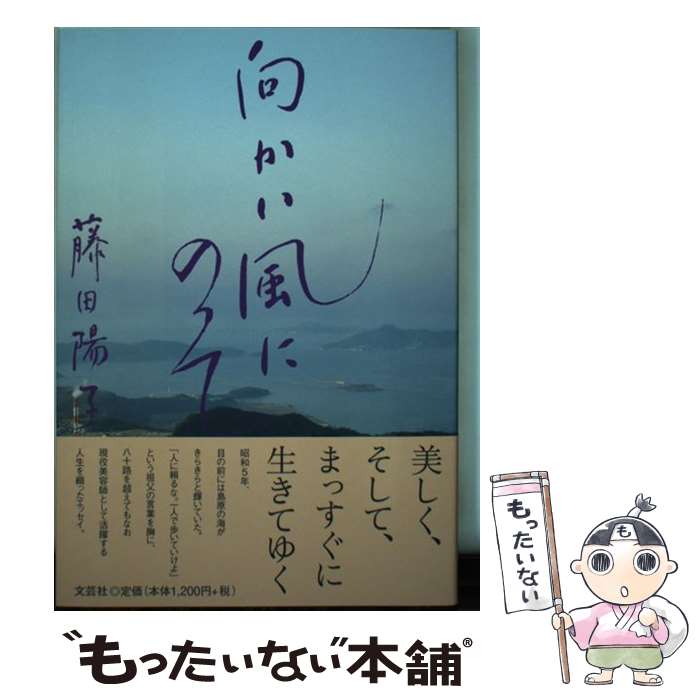 向かい風に
のって
藤田陽子
美しく、
そして、
まっすぐに
生きてゆく
昭和5年、
目の前には島原の海が
きらきらと輝いていた。
「人に頼るな。一人で歩いていけよ」
という祖父の言葉を胸に、
八十路を越えてもなお
現役美容師として活躍する
人生を綴ったエッセイ。
文芸社◎定価(本体1,200円+税)
もったいない
"もったいない本舗®